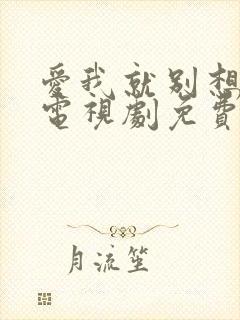 愛我就別想
電視劇免費
月流笙